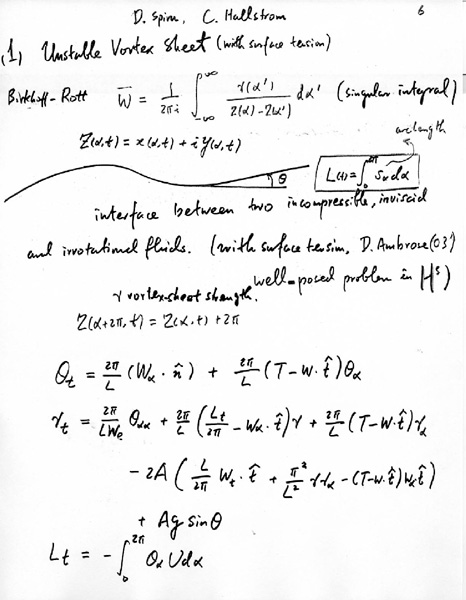 D. Spirn, C. Hallstrom
6
(1) Unstable Vortex Sheet (with surface tension)
Birkhoff-Rott W̅ = 1/(2πi) ∫_{-∞}^{∞} γ(α')/(z(α)-z(α')) dα' (singular integral)
Z(α,t) = x(α,t) + i y(α,t)
arclength
θ
L(t) = ∫_0^{2π} S_α dα
interface between two incompressible, inviscid
and irrotational fluids. (with surface tension, D. Ambrose (03')
well-posed problem in H^s)
γ vortex-sheet strength.
Z(α+2π,t) = Z(α,t) + 2π
θ_t = 2π/L (W_α · n̂) + 2π/L (T - W·t̂) θ_α
γ_t = 2π/(L We) θ_αα + 2π/L (L_t/2π - W_α·t̂) γ + 2π/L (T - W·t̂) γ_α
- 2A ( L/2π W_t · t̂ + π²/L² γγ_α - (T-W·t̂) W_α·t̂ )
+ Ag sinθ
L_t = - ∫_0^{2π} θ_α U dα